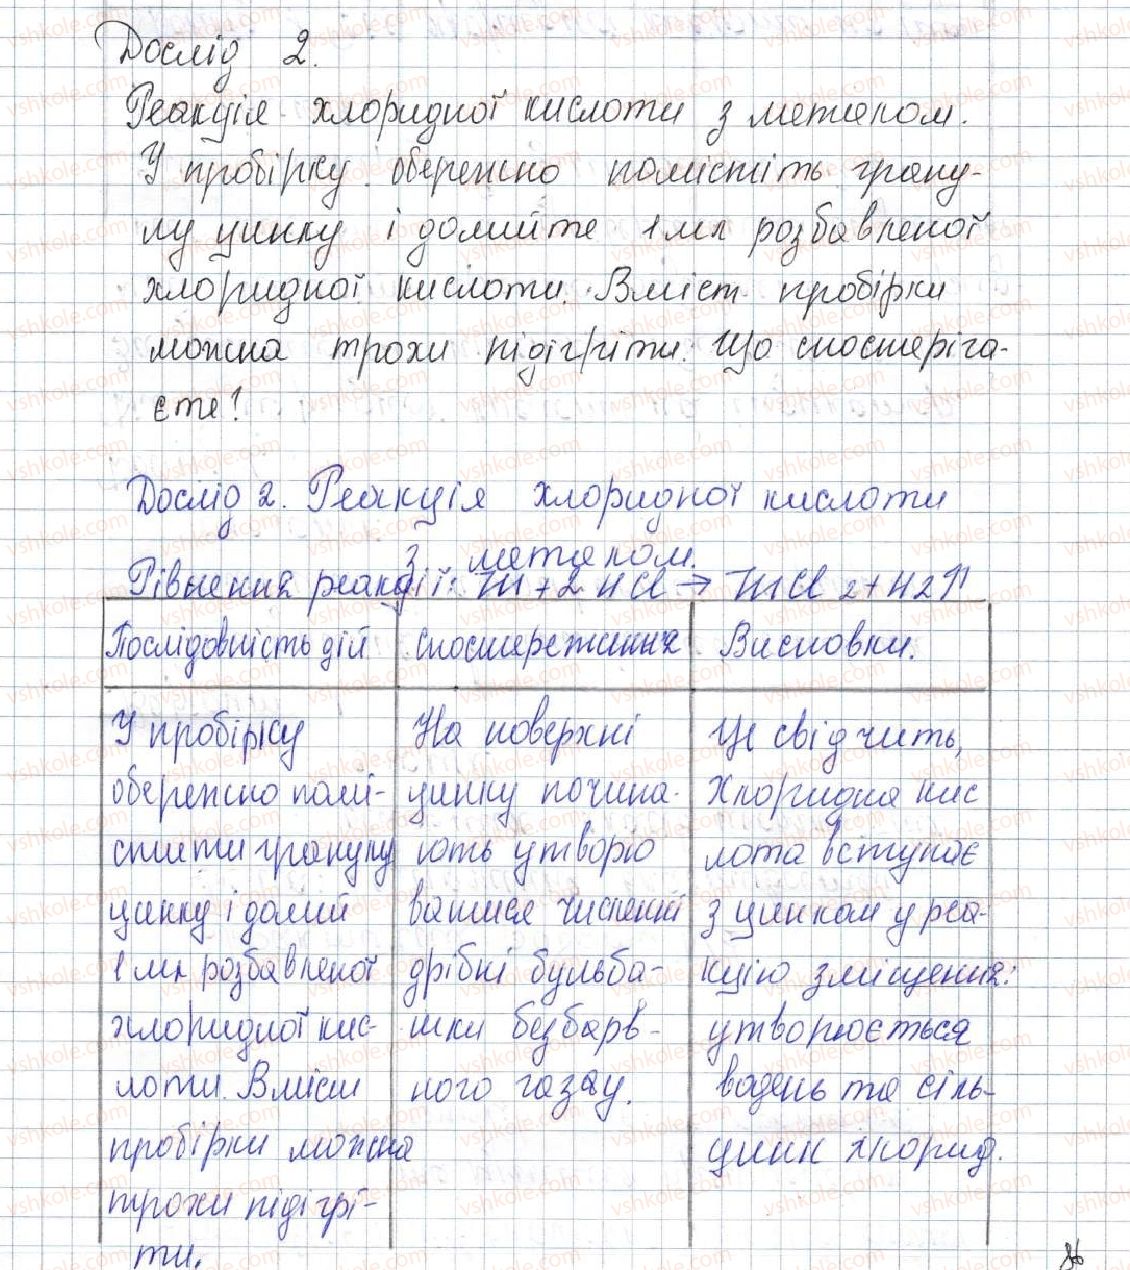 Дослід 2.
Реакція хлоридної кислоти з металом.
У пробірку обережно помістіть грану-
лу цинку і долийте 1 мл розбавленої
хлоридної кислоти. Вміст пробірки
можна трохи підігріти. Що спостеріга-
єте?
Дослід 2. Реакція хлоридної кислоти
з металом.
Рівняння реакції: Zn + 2 HCl → ZnCl 2 + H2↑
Послідовність дій
У пробірку
обережно помі-
стити гранулу
цинку і долий
1 мл розбавленої
хлоридної кис-
лоти. Вміст
пробірки можна
трохи підігрі-
ти.
спостереження
На поверхні
цинку почина-
ють утворю
ватися численні
дрібні бульба-
шки безбарв-
ного газу.
Висновки.
Це свідчить,
Хлоридна кис
лота вступає
з цинком у реа-
кцію зміщення:
утворюється
водень та сіль-
цинк хлорид.